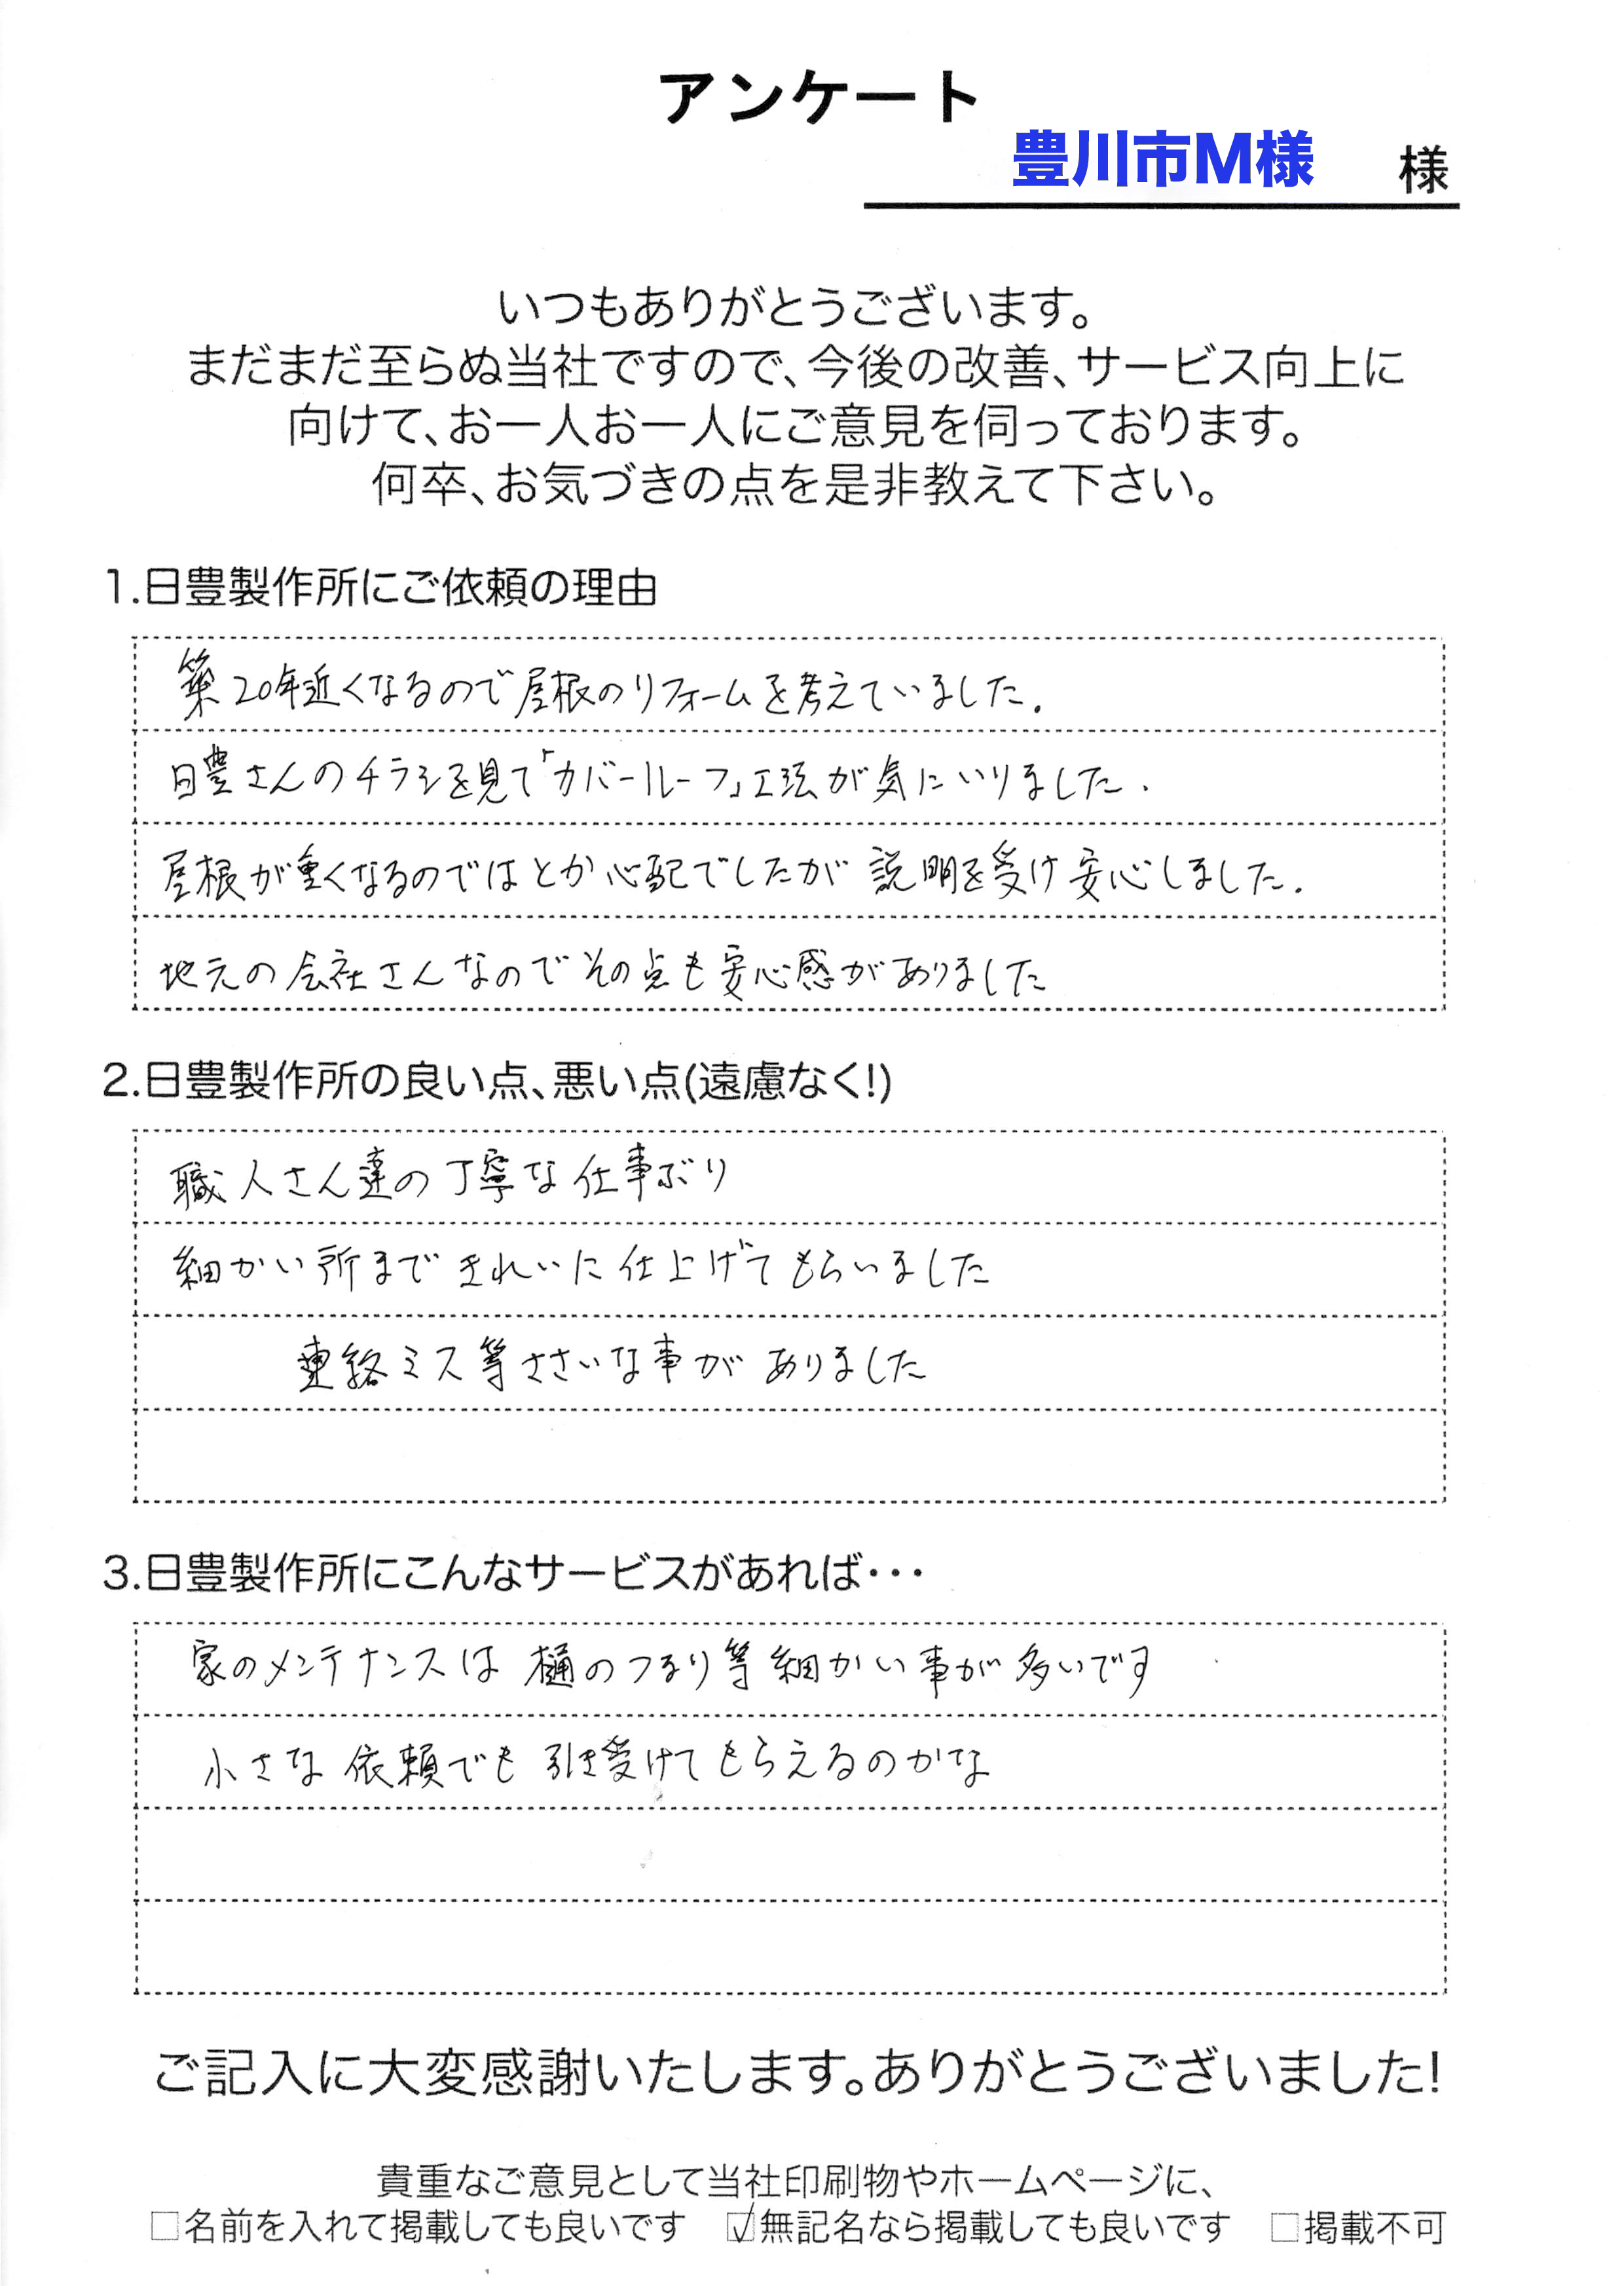 アンケート
豊川市M様 様
いつもありがとうございます。
まだまだ至らぬ当社ですので、今後の改善、サービス向上に
向けて、お一人お一人にご意見を伺っております。
何卒、お気づきの点を是非教えて下さい。
1.日豊製作所にご依頼の理由
築20年近くなるので屋根のリフォームを考えていました.
日豊さんのチラシを見て「カバールーフ」工法が気にいりました.
屋根が重くなるのではとか心配でしたが 説明を受け安心しました.
地元の会社さんなのでその点も安心感がありました
2.日豊製作所の良い点、悪い点(遠慮なく!)
職人さん達の丁寧な仕事ぶり
細かい所まできれいに仕上げてもらいました
連絡ミス等ささいな事がありました
3.日豊製作所にこんなサービスがあれば・・・
家のメンテナンスは樋のつまり等細かい事が多いです
小さな依頼でも引き受けてもらえるのかな
ご記入に大変感謝いたします。ありがとうございました!
貴重なご意見として当社印刷物やホームページに、
□名前を入れて掲載しても良いです ☑無記名なら掲載しても良いです □掲載不可